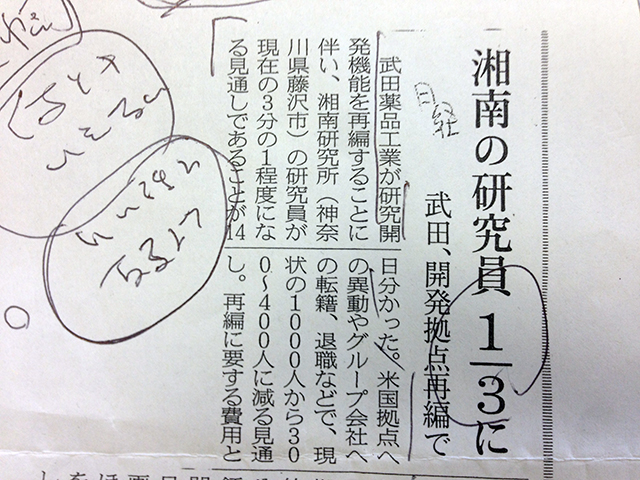 湘南の研究員1/3に
武田、開発拠点再編で
武田薬品工業が研究開
発機能を再編することに
伴い、湘南研究所（神奈
川県藤沢市）の研究員が
現在の３分の１程度にな
る見通しであることが14
日分かった。米国拠点へ
の異動やグループ会社へ
の転籍、退職などで、現
状の１０００人から３０
０〜４００人に減る見通
し。再編に要する費用と